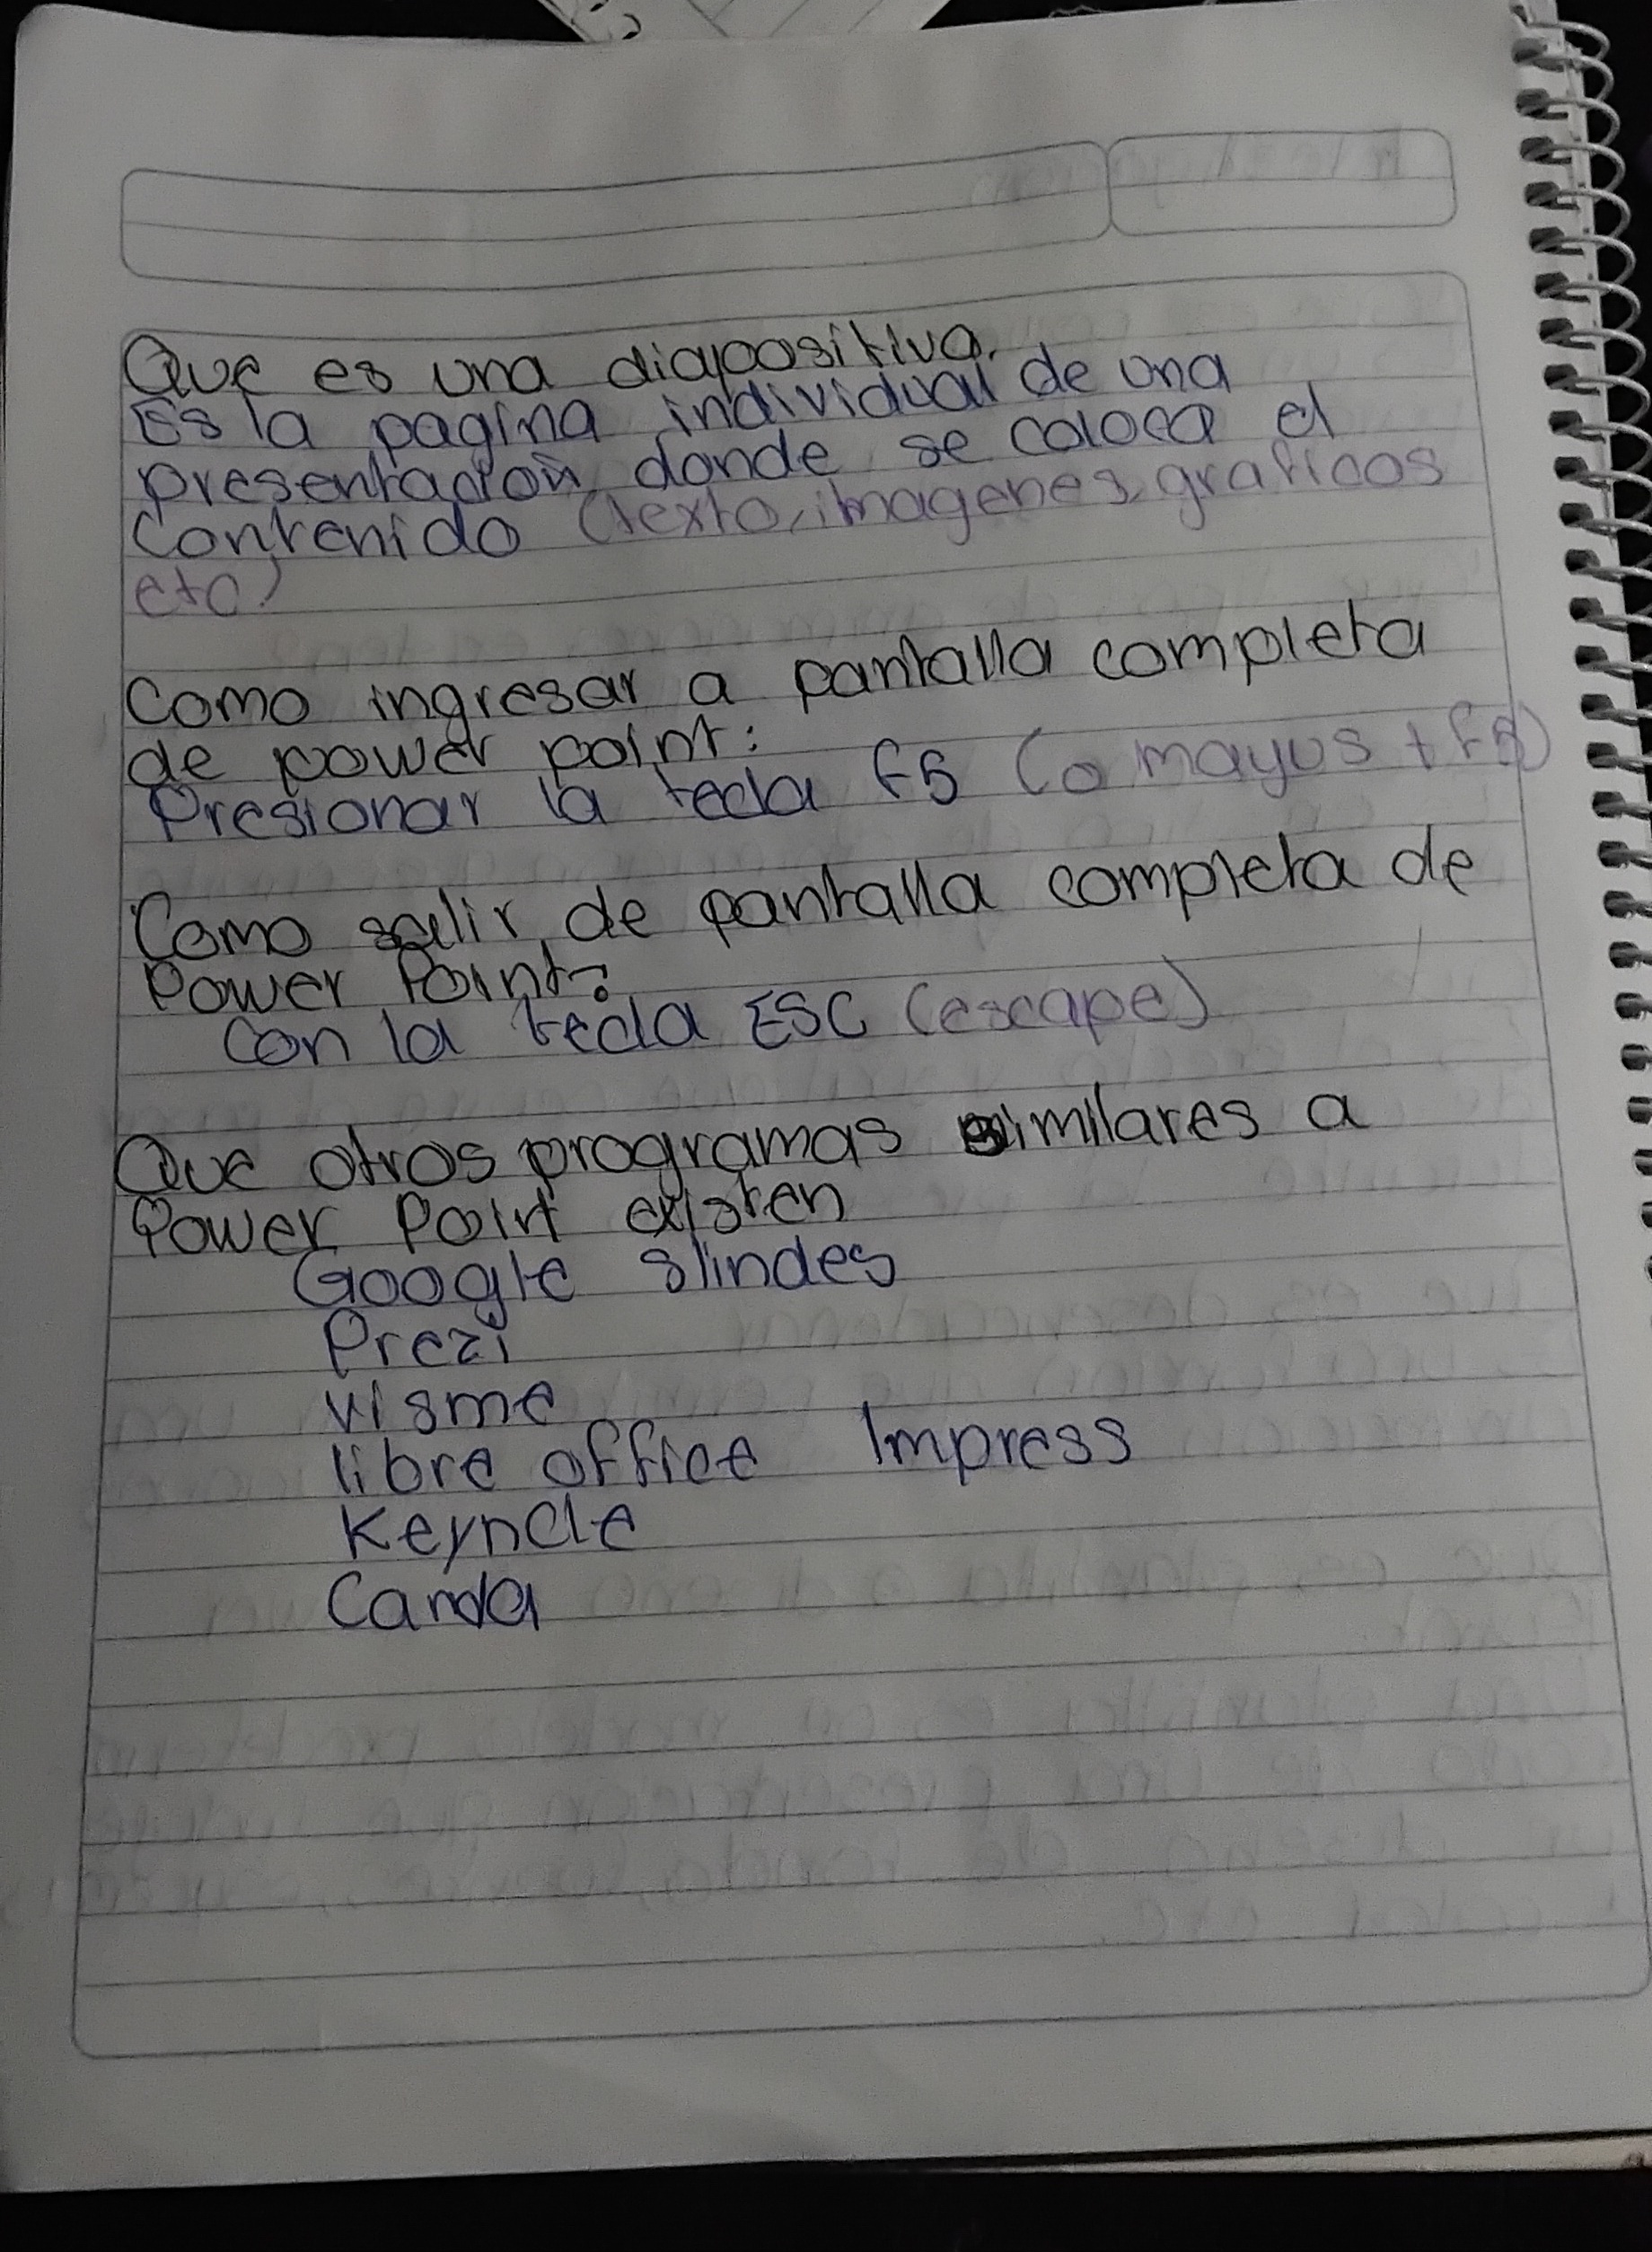 Que es una diapositiva.
Es la pagina individual de una
presentación donde se coloca el
contenido (texto, imagenes, graficos
etc)
Como ingresar a pantalla completa
de power point:
Presionar la tecla F5 (o mayus + F5)
Como salir de pantalla completa de
Power Point:
Con la tecla ESC (escape)
Que otros programas similares a
Power Point existen
Google slindes
Prezi
visme
libre office Impress
Keyncle
Canda